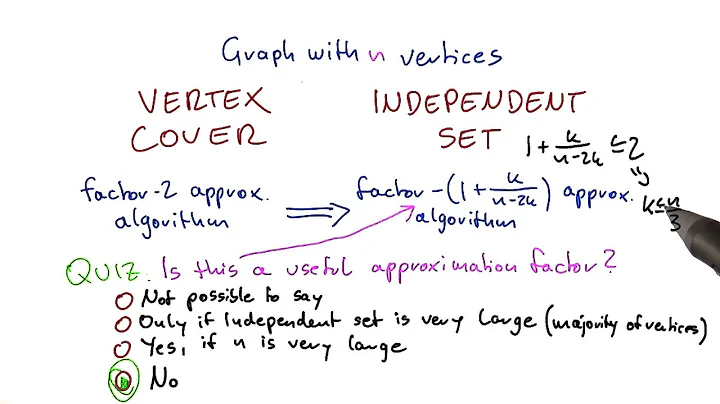 Graph with n vertices
VERTEX COVER
INDEPENDENT SET
1 + k/(n-2k) ≤ 2
⇒
k ≤ n/3
factor-2 approx. algorithm
⇒
factor-(1 + k/(n-2k)) approx. algorithm
QUIZ. Is this a useful approximation factor?
Not possible to say
Only if Independent set is very large (majority of vertices)
Yes, if n is very large
No